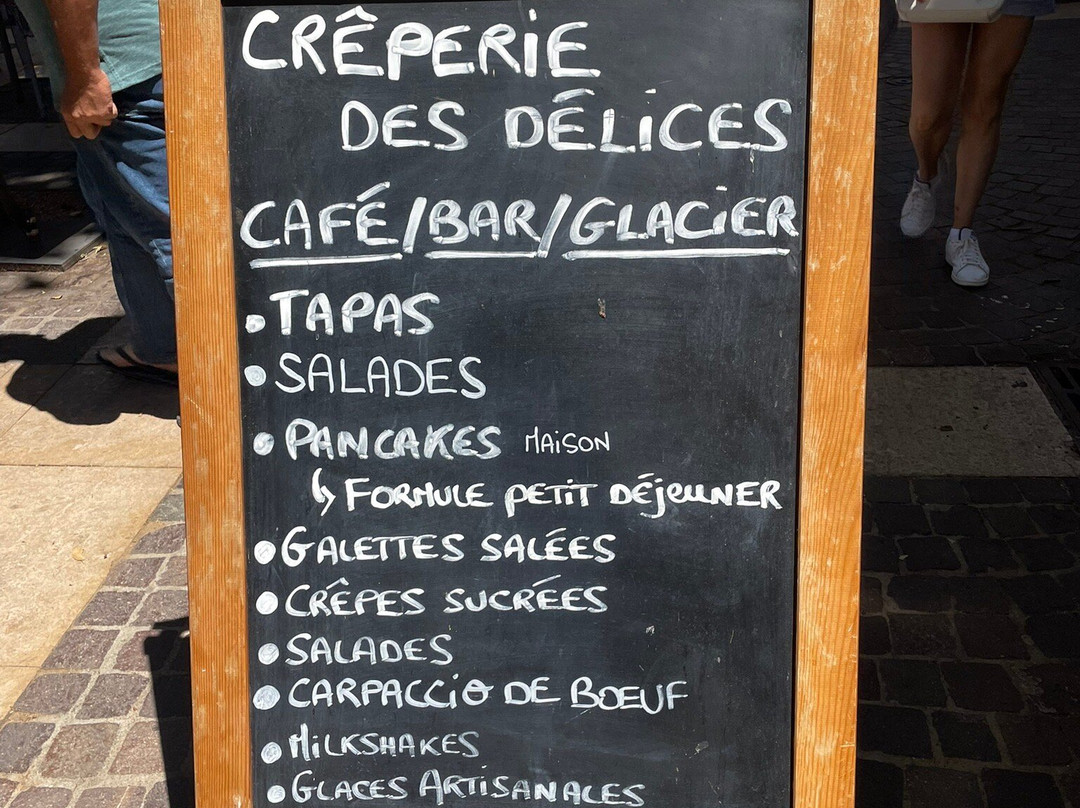 CRÊPERIE
DES DÉLICES
CAFÉ/BAR/GLACIER
• TAPAS
• SALADES
• PANCAKES MAISON
↳ FORMULE PETIT DÉJEUNER
• GALETTES SALÉES
• CRÊPES SUCRÉES
• SALADES
• CARPACCIO DE BOEUF
• MILKSHAKES
• GLACES ARTISANALES